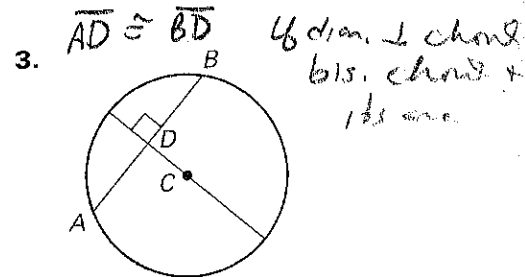 3. AD ≅ BD
If diam. ⊥ chord
bis. chord +
its arc
B
D
C
A